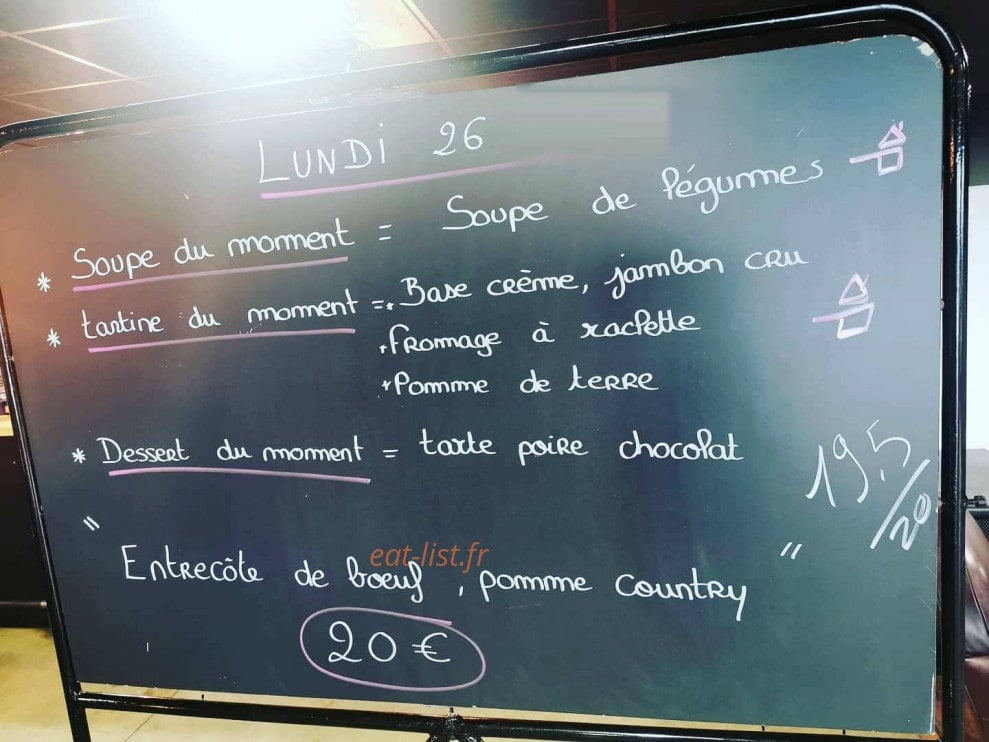 LUNDI 26
* Soupe du moment = Soupe de légumes
* tartine du moment = * Base crème, jambon cru
* fromage à raclette
* Pomme de terre
* Dessert du moment = tarte poire chocolat
19,5/20
" Entrecôte de boeuf, pomme country "
eat-list.fr
20 €